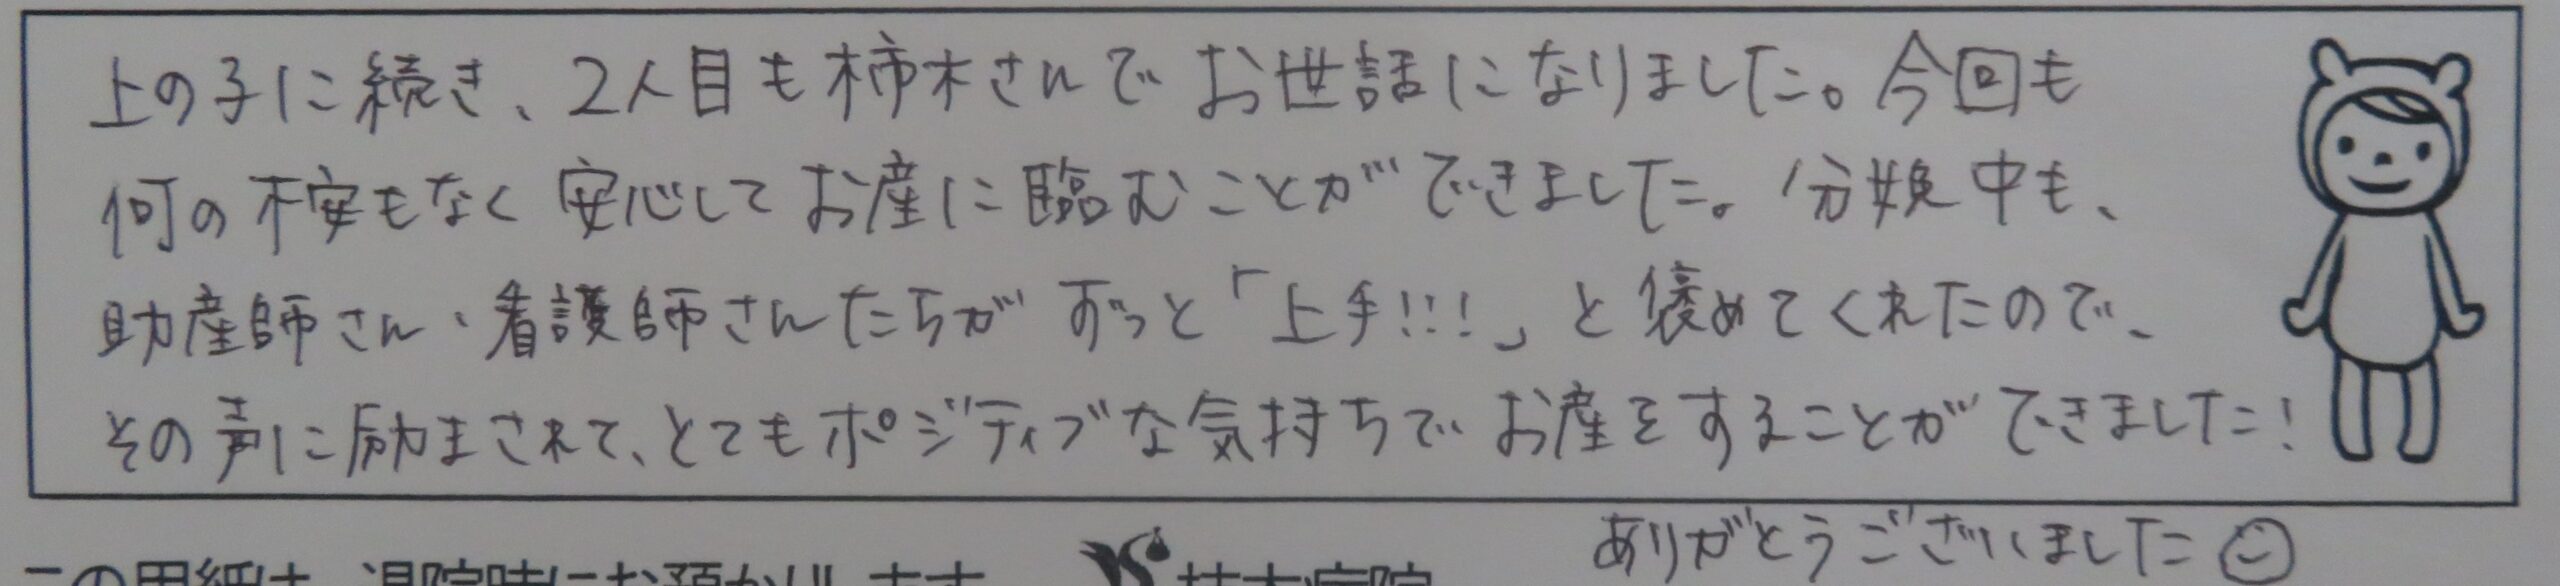 上の子に続き、2人目も柿木さんでお世話になりました。今回も
何の不安もなく安心してお産に臨むことができました。分娩中も、
助産師さん、看護師さんたちがずっと「上手!!!」と褒めてくれたので、
その声に励まされて、とてもポジティブな気持ちでお産をすることができました!
ありがとうございました
この用紙は、退院時にお預かりします